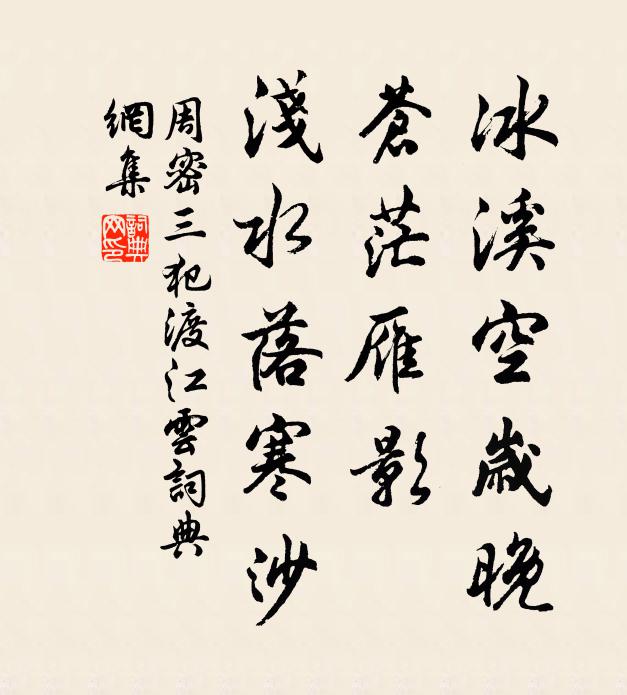 冰溪空歲晚
蒼茫雁影
淺水落寒沙
周密三犯渡江雲詞典
網集
詞典網印